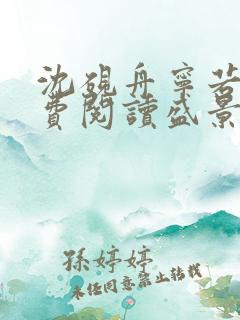 沈硯舟寧若
費閱讀盛景
孫婷婷
未经同意禁止转载